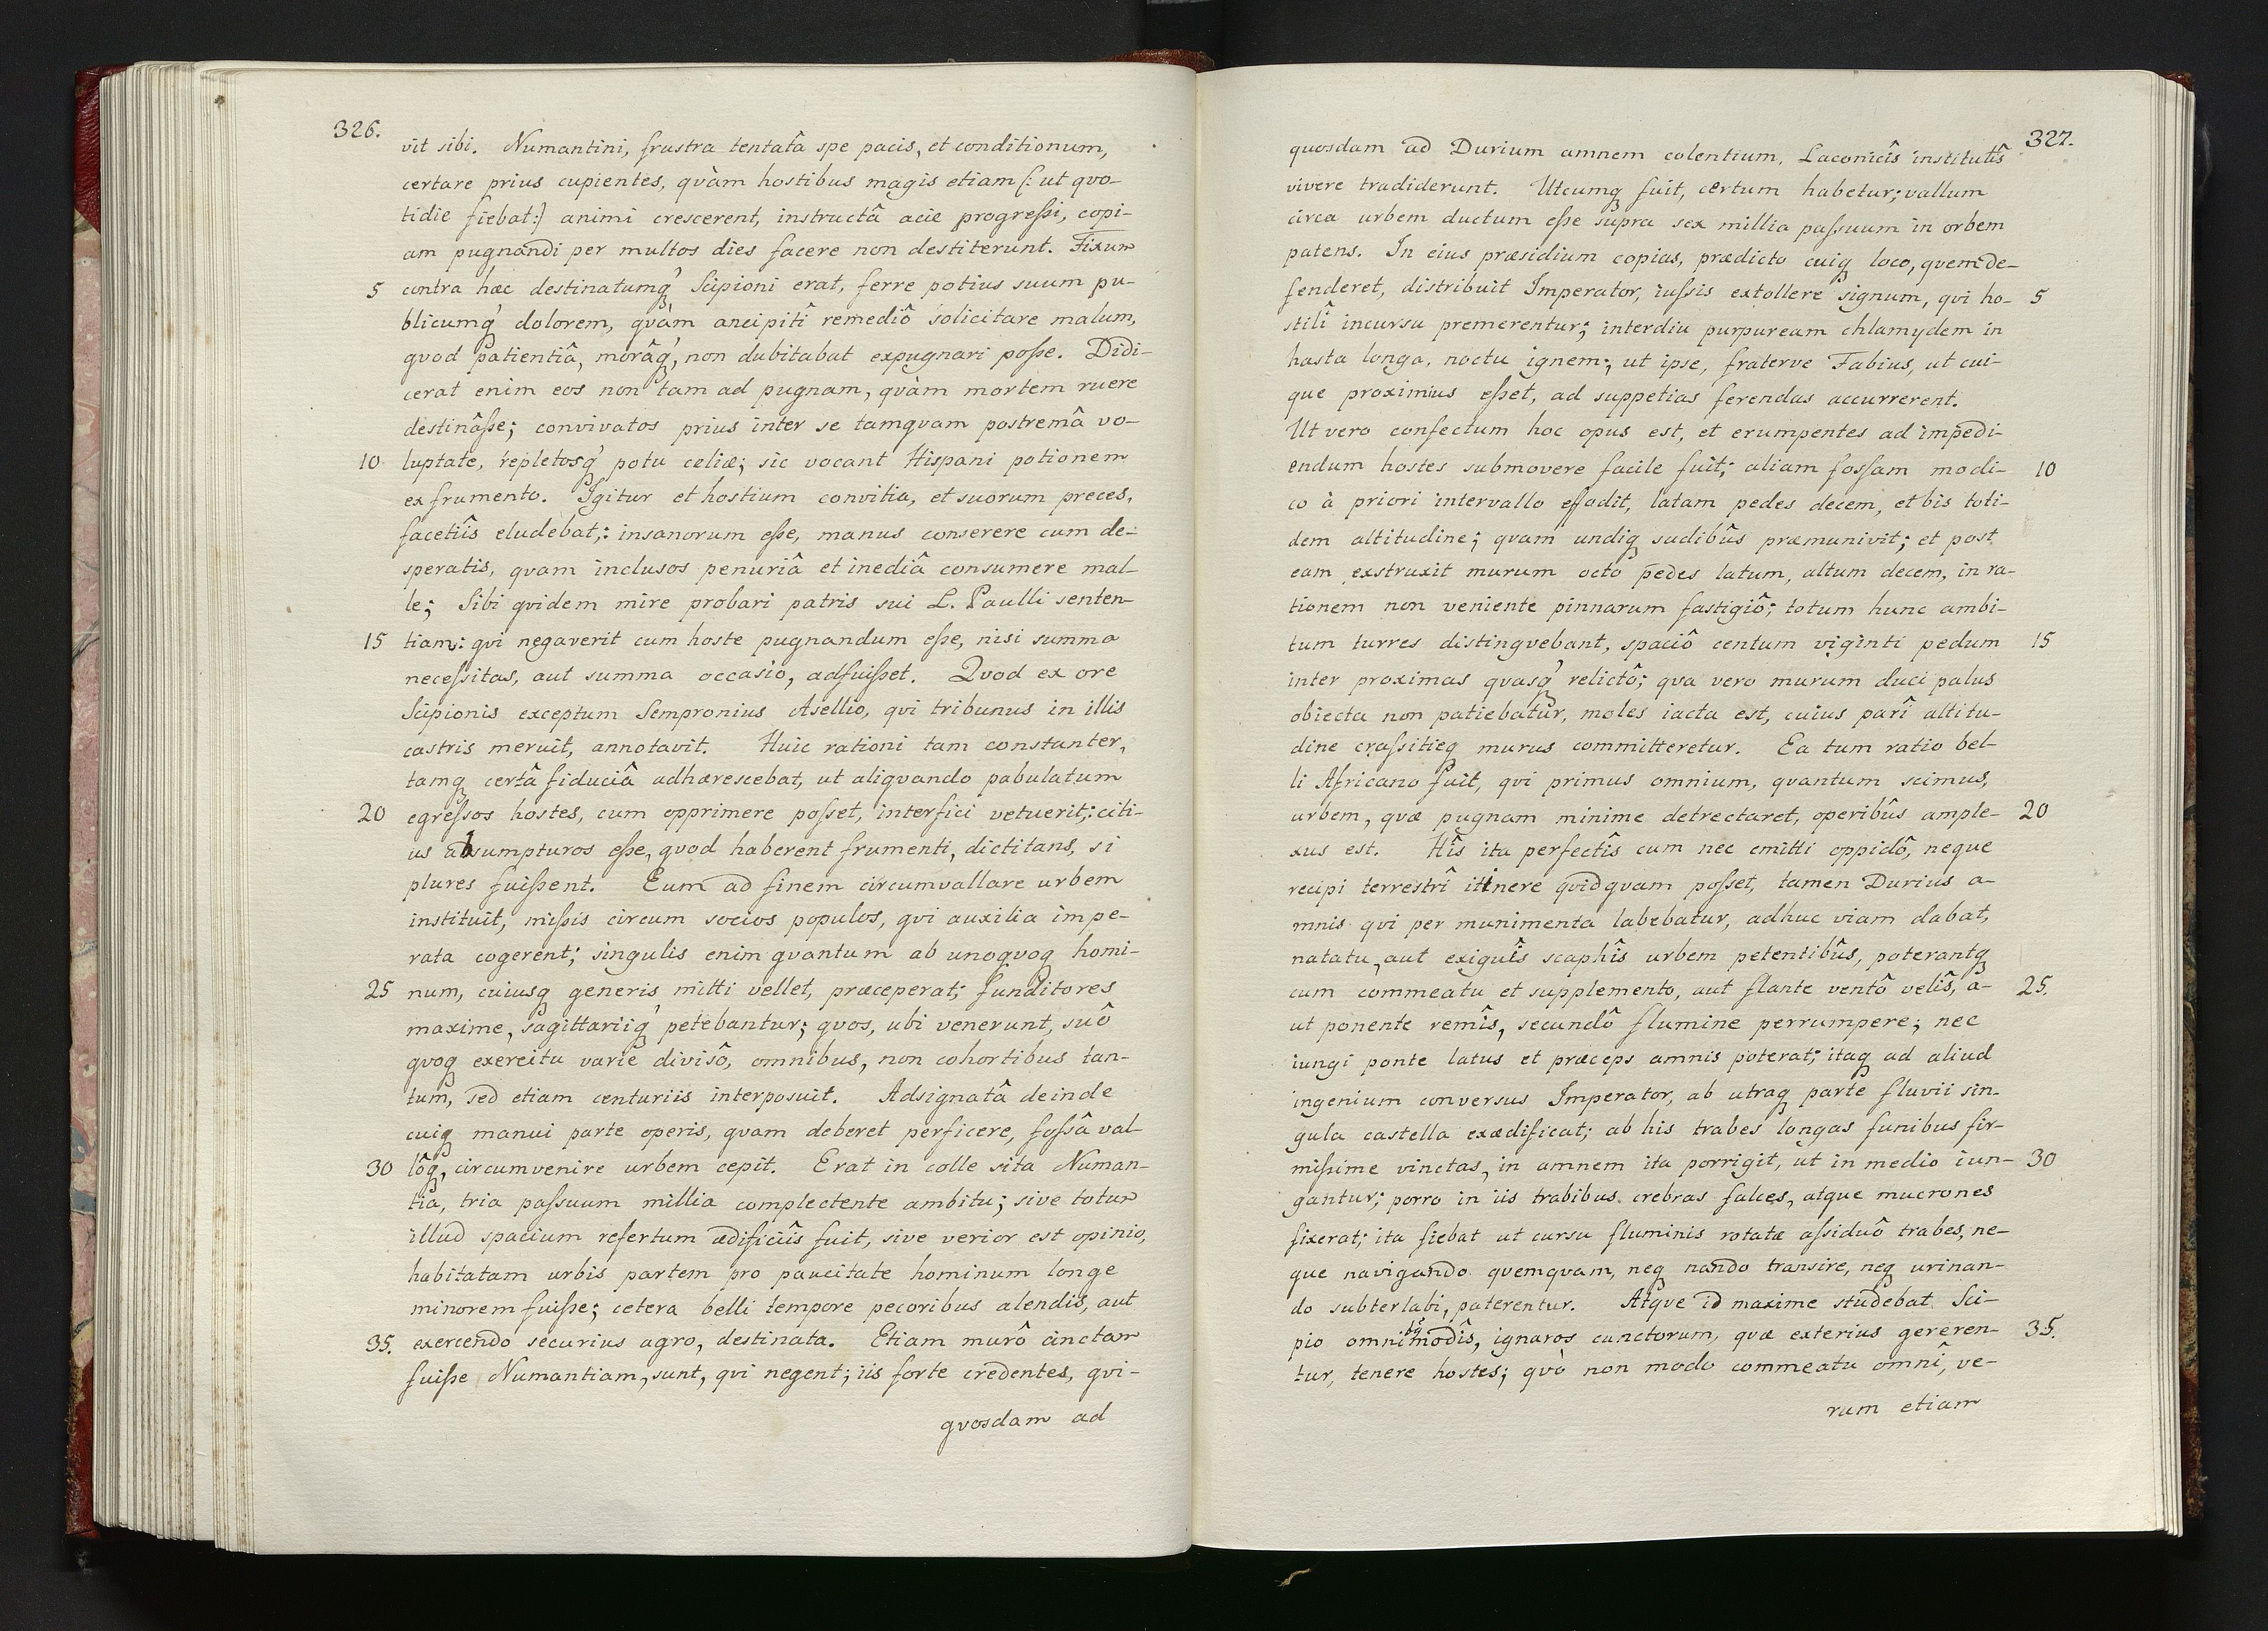 326.
vit sibi. Numantini, frustra tentatâ spe pacis, et conditionum,
certare prius cupientes, qvàm hostibus magis etiam (: ut qvo-
tidie fiebat:) animi crescerent, instructâ acie progreßi, copi-
am pugnandi per multos dies facere non destiterunt. Fixum
5 contra hæc destinatumq́ Scipioni erat, ferre potius suum pu-
blicumq́ dolorem, qvàm ancipitî remediô solicitare malum,
qvod patientiâ, morâq́, non dubitabat expugnari poße. Didi-
cerat enim eos non tam ad pugnam, qvàm mortem ruere
destinâße; convivatos prius inter se tamqvam postremâ vo-
10 luptate, repletosq́ potu celiæ; sic vocant Hispani potionem
ex frumento. Igitur et hostium convitia, et suorum preces,
facetiîs eludebat,: insanorum eße, manus conserere cum de-
speratis, qvam inclusos penuriâ et inediâ consumere mal-
le; Sibi qvidem mire probari patris sui L. Paulli senten-
15 tiam: qvi negaverit cum hoste pugnandum eße, nisi summa
neceßitas, aut summa occasio, adfuißet. Qvod ex ore
Scipionis exceptum Sempronius Asellio, qvi tribunus in illis
castris meruit, annotavit. Huic rationi tam constanter,
tamq certâ fiduciâ adhærescebat, ut aliqvando pabulatum
20 egreßos hostes, cum opprimere poßet, interfici vetuerit;: citi-
us absumpturos eße, qvod haberent frumenti, dictitans, si
plures fuißent. Eum ad finem circumvallare urbem
instituit, mißis circum socios populos, qvi auxilia impe-
rata cogerent; singulis enim qvantum ab unoqvoq homi-
25 num, cuiusq generis mitti vellet, præceperat; funditores
maxime, sagittariiq́ petebantur; qvos, ubi venerunt, suô
qvoq exercitu varie divisô, omnibus, non cohortibus tan-
tum, sed etiam centuriis interposuit. Adsignatâ deinde
cuiq manui parte operis, qvam deberet perficere, foßâ val-
30 lôq, circumvenire urbem cepit. Erat in colle sita Numan-
tia, tria paßuum millia complectente ambitu; sive totum
illud spacium refertum ædificiîs fuit, sive verior est opinio,
habitatam urbis partem pro paucitate hominum longe
minorem fuiße; cetera belli tempore pecoribus alendis, aut
35. exercendo securius agro, destinata. Etiam murô cinctam
fuiße Numantiam, sunt, qvi negent; iis forte credentes, qvi-
qvosdam ad
327.
quosdam ad Durium amnem colentium, Laconicîs institutîs
vivere tradiderunt. Utcumq fuit, certum habetur; vallum
circa urbem ductum eße supra sex millia paßuum in orbem
patens. In eius præsidium copias, prædicto cuiq loco, qvem de-
fenderet, distribuit Imperator, iußis extollere signum, qvi ho- 5
stilî incursu premerentur; interdiu purpuream chlamydem in
hasta longa, noctu ignem; ut ipse, fraterve Fabius, ut cui-
que proximius eßet, ad suppetias ferendas accurrerent.
Ut vero confectum hoc opus est, et erumpentes ad impedi-
endum hostes submovere facile fuit; aliam foßam modi- 10
co à priori intervallo effodit, latam pedes decem, et bis toti-
dem altitudine; qvam undiq sudibûs præmunivit; et post
eam exstruxit murum octo pedes latum, altum decem, in ra-
tionem non veniente pinnarum fastigiô; totum hunc ambi-
tum turres distingvebant, spaciô centum viginti pedum 15
inter proximas qvasq́ relictô; qva vero murum duci palus
obiecta non patiebatur, moles iacta est, cuius parî altitu-
dine craßitieq murus committeretur. Ea tum ratio bel-
li Africano fuit, qvi primus omnium, qvantum scimus,
urbem, qvæ pugnam minime detrectaret, operibûs ample- 20
xus est. Hîs ita perfectîs cum nec emitti oppidô, neque
recipi terrestrî itinere qvidqvam poßet, tamen Durius a-
mnis qvi per munimenta labebatur, adhuc viam dabat,
natatu, aut exiguîs scaphîs urbem petentibûs, poterantq
cum commeatu et supplemento, aut flante ventô velîs, a- 25.
ut ponente remîs, secundô flumine perrumpere; nec
iungi ponte latus et præceps amnis poterat; itaq ad aliud
ingenium conversus Imperator, ab utraq parte fluvii sin-
gula castella exædificat; ab his trabes longas funibus fir-
mißime vinctas, in amnem ita porrigit, ut in medio iun- 30
gantur; porro in iis trabibus crebras falces, atque mucrones
fixerat; ita fiebat ut cursu fluminis rotatæ aßiduô trabes, ne-
que navigando qvemqvam, neq nando transire, neq urinan-
do subterlabi, paterentur. Atqve id maxime studebat Sci-
pio omnibq modîs, ignaros cunctorum, qvæ exterius gereren- 35.
tur, tenere hostes; qvò non modo commeatu omnî, ve-
rum etiam